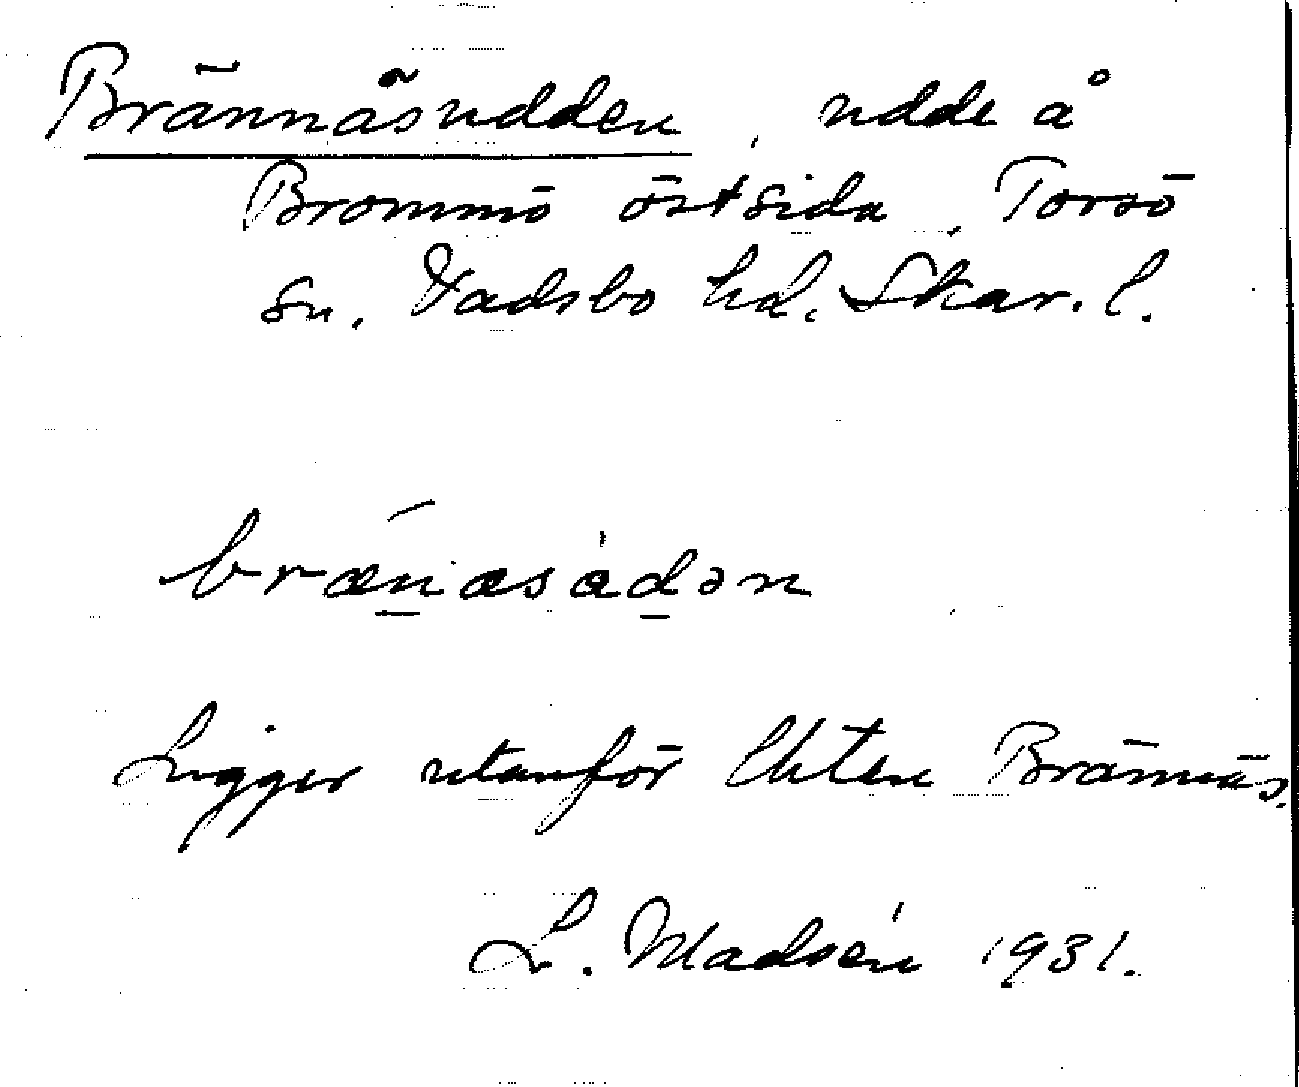 Brännäsudden, udde å
Brommö östsida, Torsö
sn. Vadsbo hd. Skar. l.
brænæsadən
Ligger utanför Brännäs.
L. Madsén 1931.